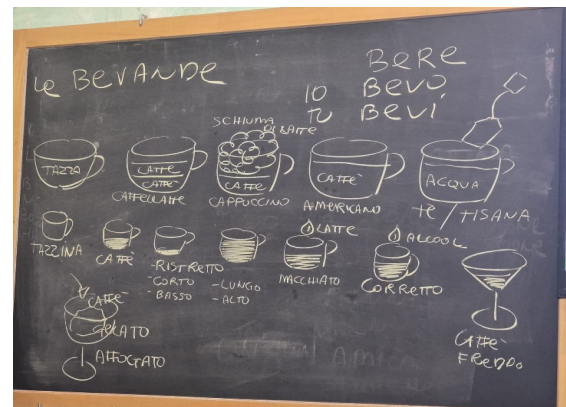 Le BEVANDE
BERE
IO BEVO
TU BEVI
SCHIUMA
DI LATTE
TAZZA
LATTE
CAFFÈ
CAFFELLATTE
CAFFÈ
CAPPUCCINO
CAFFÈ
AMERICANO
ACQUA
TE / TISANA
TAZZINA
CAFFÈ
-RISTRETTO
-CORTO
-BASSO
-LUNGO
-ALTO
LATTE
MACCHIATO
ALCOOL
CORRETTO
CAFFÈ
FREDDO
CAFFÈ
GELATO
AFFOGATO